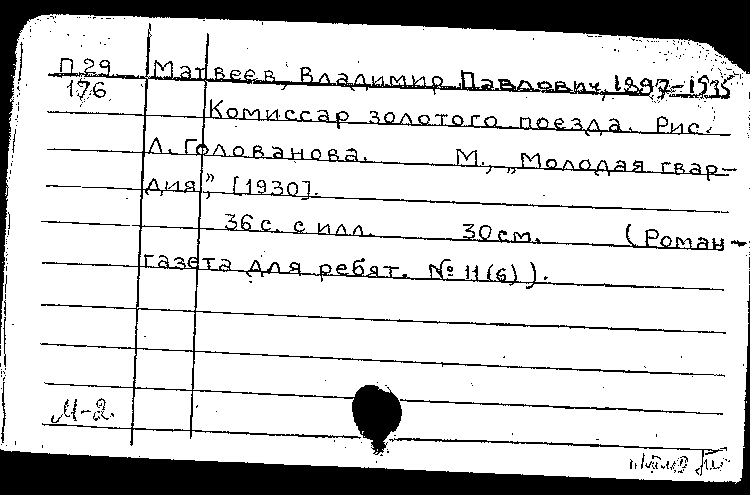 П29 Матвеев, Владимир Павлович, 1897-1935
176
Комиссар золотого поезда. Рис.
Л. Голованова. М., „Молодая гвар-
дия”, [1930].
36 с. с илл. 30 см. (Роман-
газета для ребят. № 11(6)).
М-2.